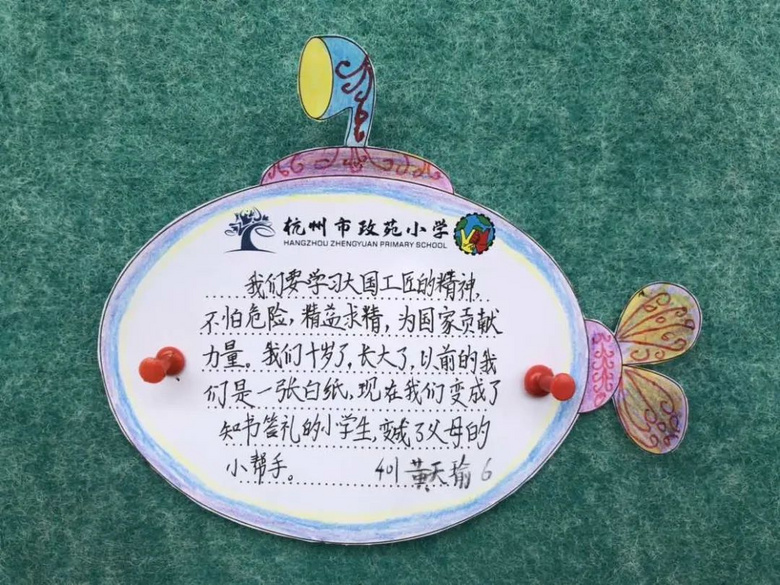 杭州市政苑小学
HANGZHOU ZHENGYUAN PRIMARY SCHOOL
我们要学习大国工匠的精神,
不怕危险,精益求精,为国家贡献
力量。我们十岁了,长大了,以前的我
们是一张白纸,现在我们变成了
知书答礼的小学生,变成了父母的
小帮手。 401 黄天瑜 6